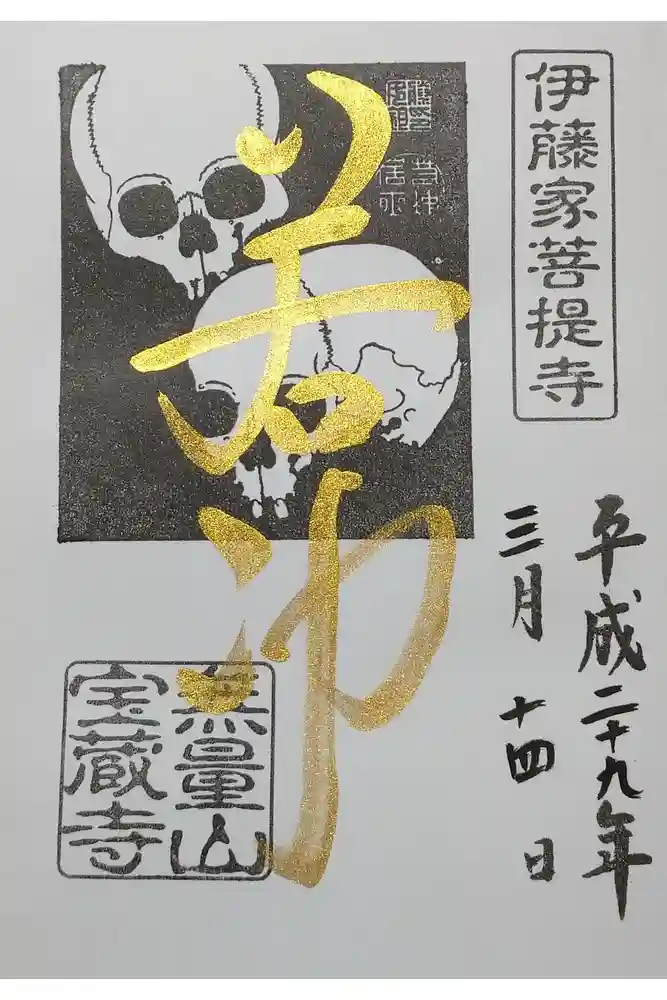 伊藤家菩提寺
平成二十九年
三月十四日
若冲
若冲
居士
無量山
宝蔵寺